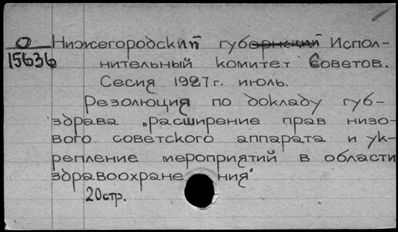 О
15636
Нижегородский губернский Испол-
нительный комитет Советов.
Сесия 1927 г. июль.
Резолюция по докладу губ-
здрава „расширение прав низо-
вого советского аппарата и ук-
репление мероприятий в области
здравоохране ния"
20стр.